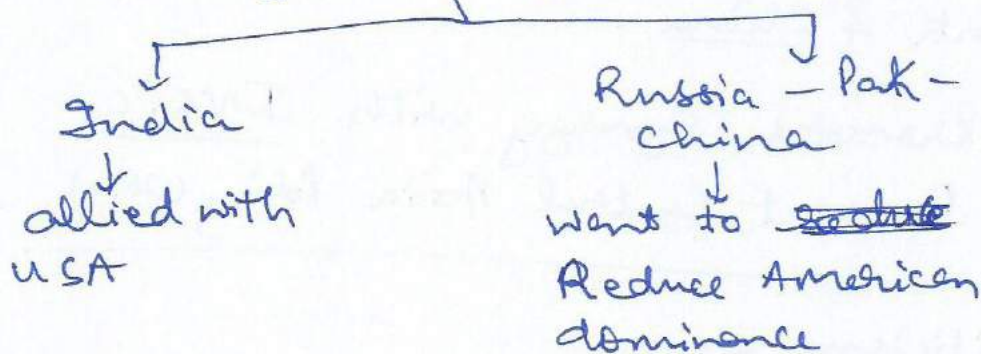 India
allied with
USA
Russia - Pak -
China
want to
Reduce American
dominance